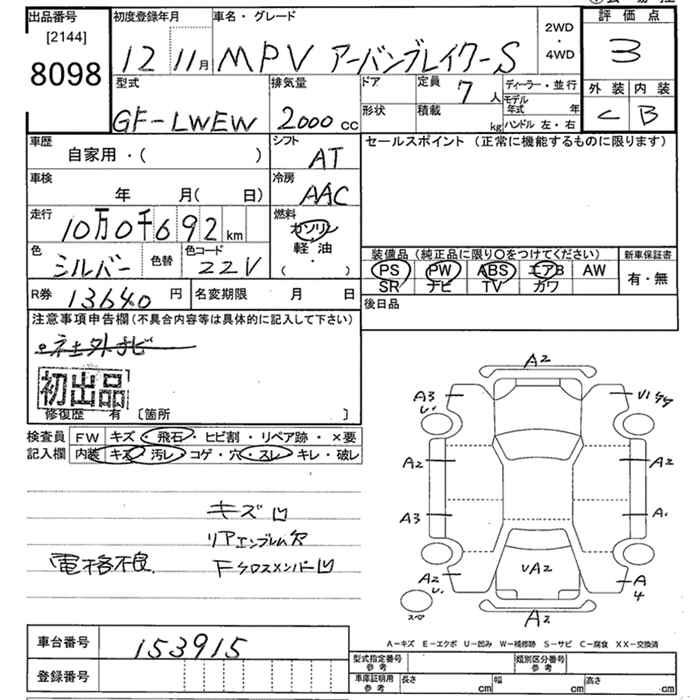 出品番号 初度登録年月 車名・グレード 2WD・4WD 評価点
[2144]
8098 12 11月 MPV アーバンブレイク-S 3
型式 排気量 ドア 定員 7人 ディーラー・並行 外装 内装
GF-LWEW 2000cc 形状 積載 kg モデル年式 年 C B
ハンドル 左・右
車歴 シフト セールスポイント (正常に機能するものに限ります)
自家用・( ) AT
車検 冷房
年 月( 日) AAC
走行 燃料
10万0千692km ガソリン
軽油・( )
色 色替 色コード 装備品 (純正品に限り○をつけてください) 新車保証書
シルバー 22V PS PW ABS エアB AW 有・無
SR ナビ TV カワ
R券 13640円 名変期限 月 日 後日品
注意事項申告欄(不具合内容等は具体的に記入して下さい)
社外ナビ
初出品
修復歴 有 [箇所 ]
検査員 FW キズ・飛石・ヒビ割・リペア跡・×要
記入欄 内装 キズ・汚レ・コゲ・穴・スレ・キレ・破レ
キズ凹
リアエンブレム欠
電格不良 Fクロスメンバー凹
A2
A3 U.
V1
A2 A2
A3 A.
A2 U. VA2 A4
スペ A2
A-キズ E-エクボ U-凹み W-補修跡 S-サビ C-腐食 XX-交換済
車台番号 153915
型式指定番号 参考 類別区分番号 参考
登録番号 車庫証明用 参考 長さ cm 幅 cm 高さ cm